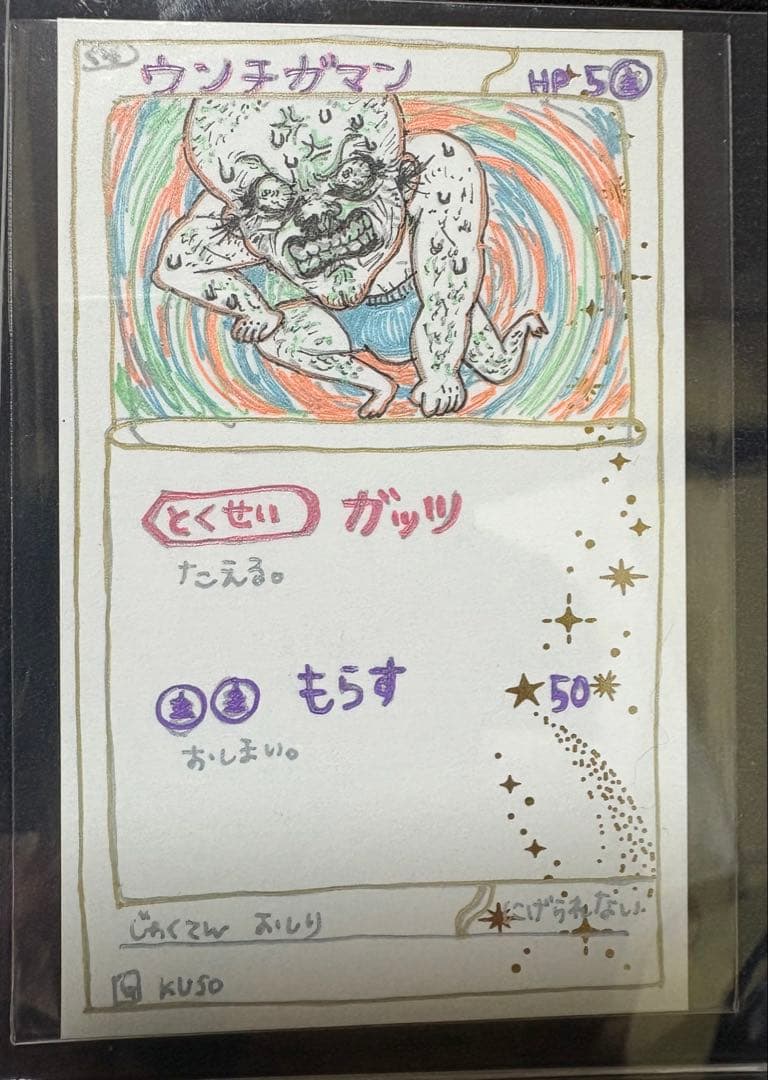 ウンチガマン HP 5
とくせい ガッツ
たえる。
もらす 50
おしまい。
じゃくてん おしり にげられない
KUSO